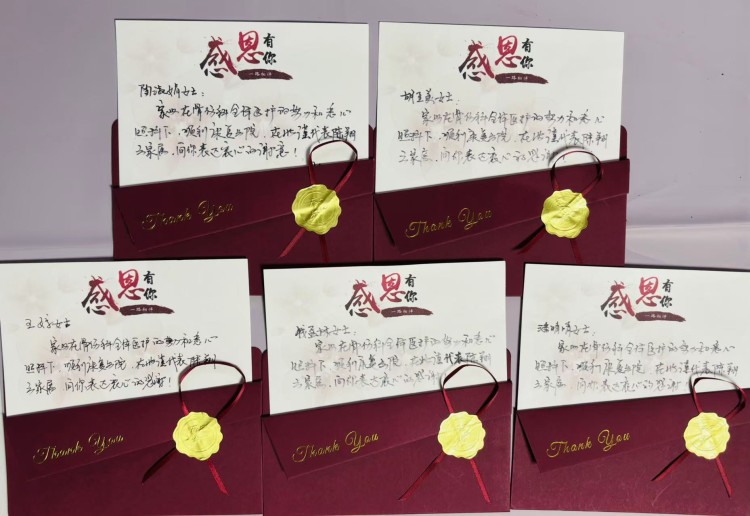 感恩有你
一路相伴
陶淑娟女士：
家父在骨伤科全体医护的努力和悉心
照料下，顺利康复出院，在此谨代表陈翔
之家庭，向你表达衷心的谢意！
Thank You
感恩有你
一路相伴
胡玉英女士：
家父在骨伤科全体医护的努力和悉心
照料下，顺利康复出院，在此谨代表陈翔
之家庭，向你表达衷心的感谢
Thank You
感恩有你
一路相伴
王婷女士
家父在骨伤科全体医护的努力和悉心
照料下，顺利康复出院，在此谨代表陈翔
之家庭，向你表达衷心的感谢！
Thank You
感恩有你
一路相伴
女士：
家父在骨伤科全体医护的努力和悉心
照料下，顺利康复出院，在此谨代表陈翔
之家庭，向你表达衷心的感谢！
Thank You
感恩有你
一路相伴
女士：
家父在骨伤科全体医护的努力和悉心
照料下，顺利康复出院，在此谨代表陈翔
之家庭，向你表达衷心的感谢
Thank You